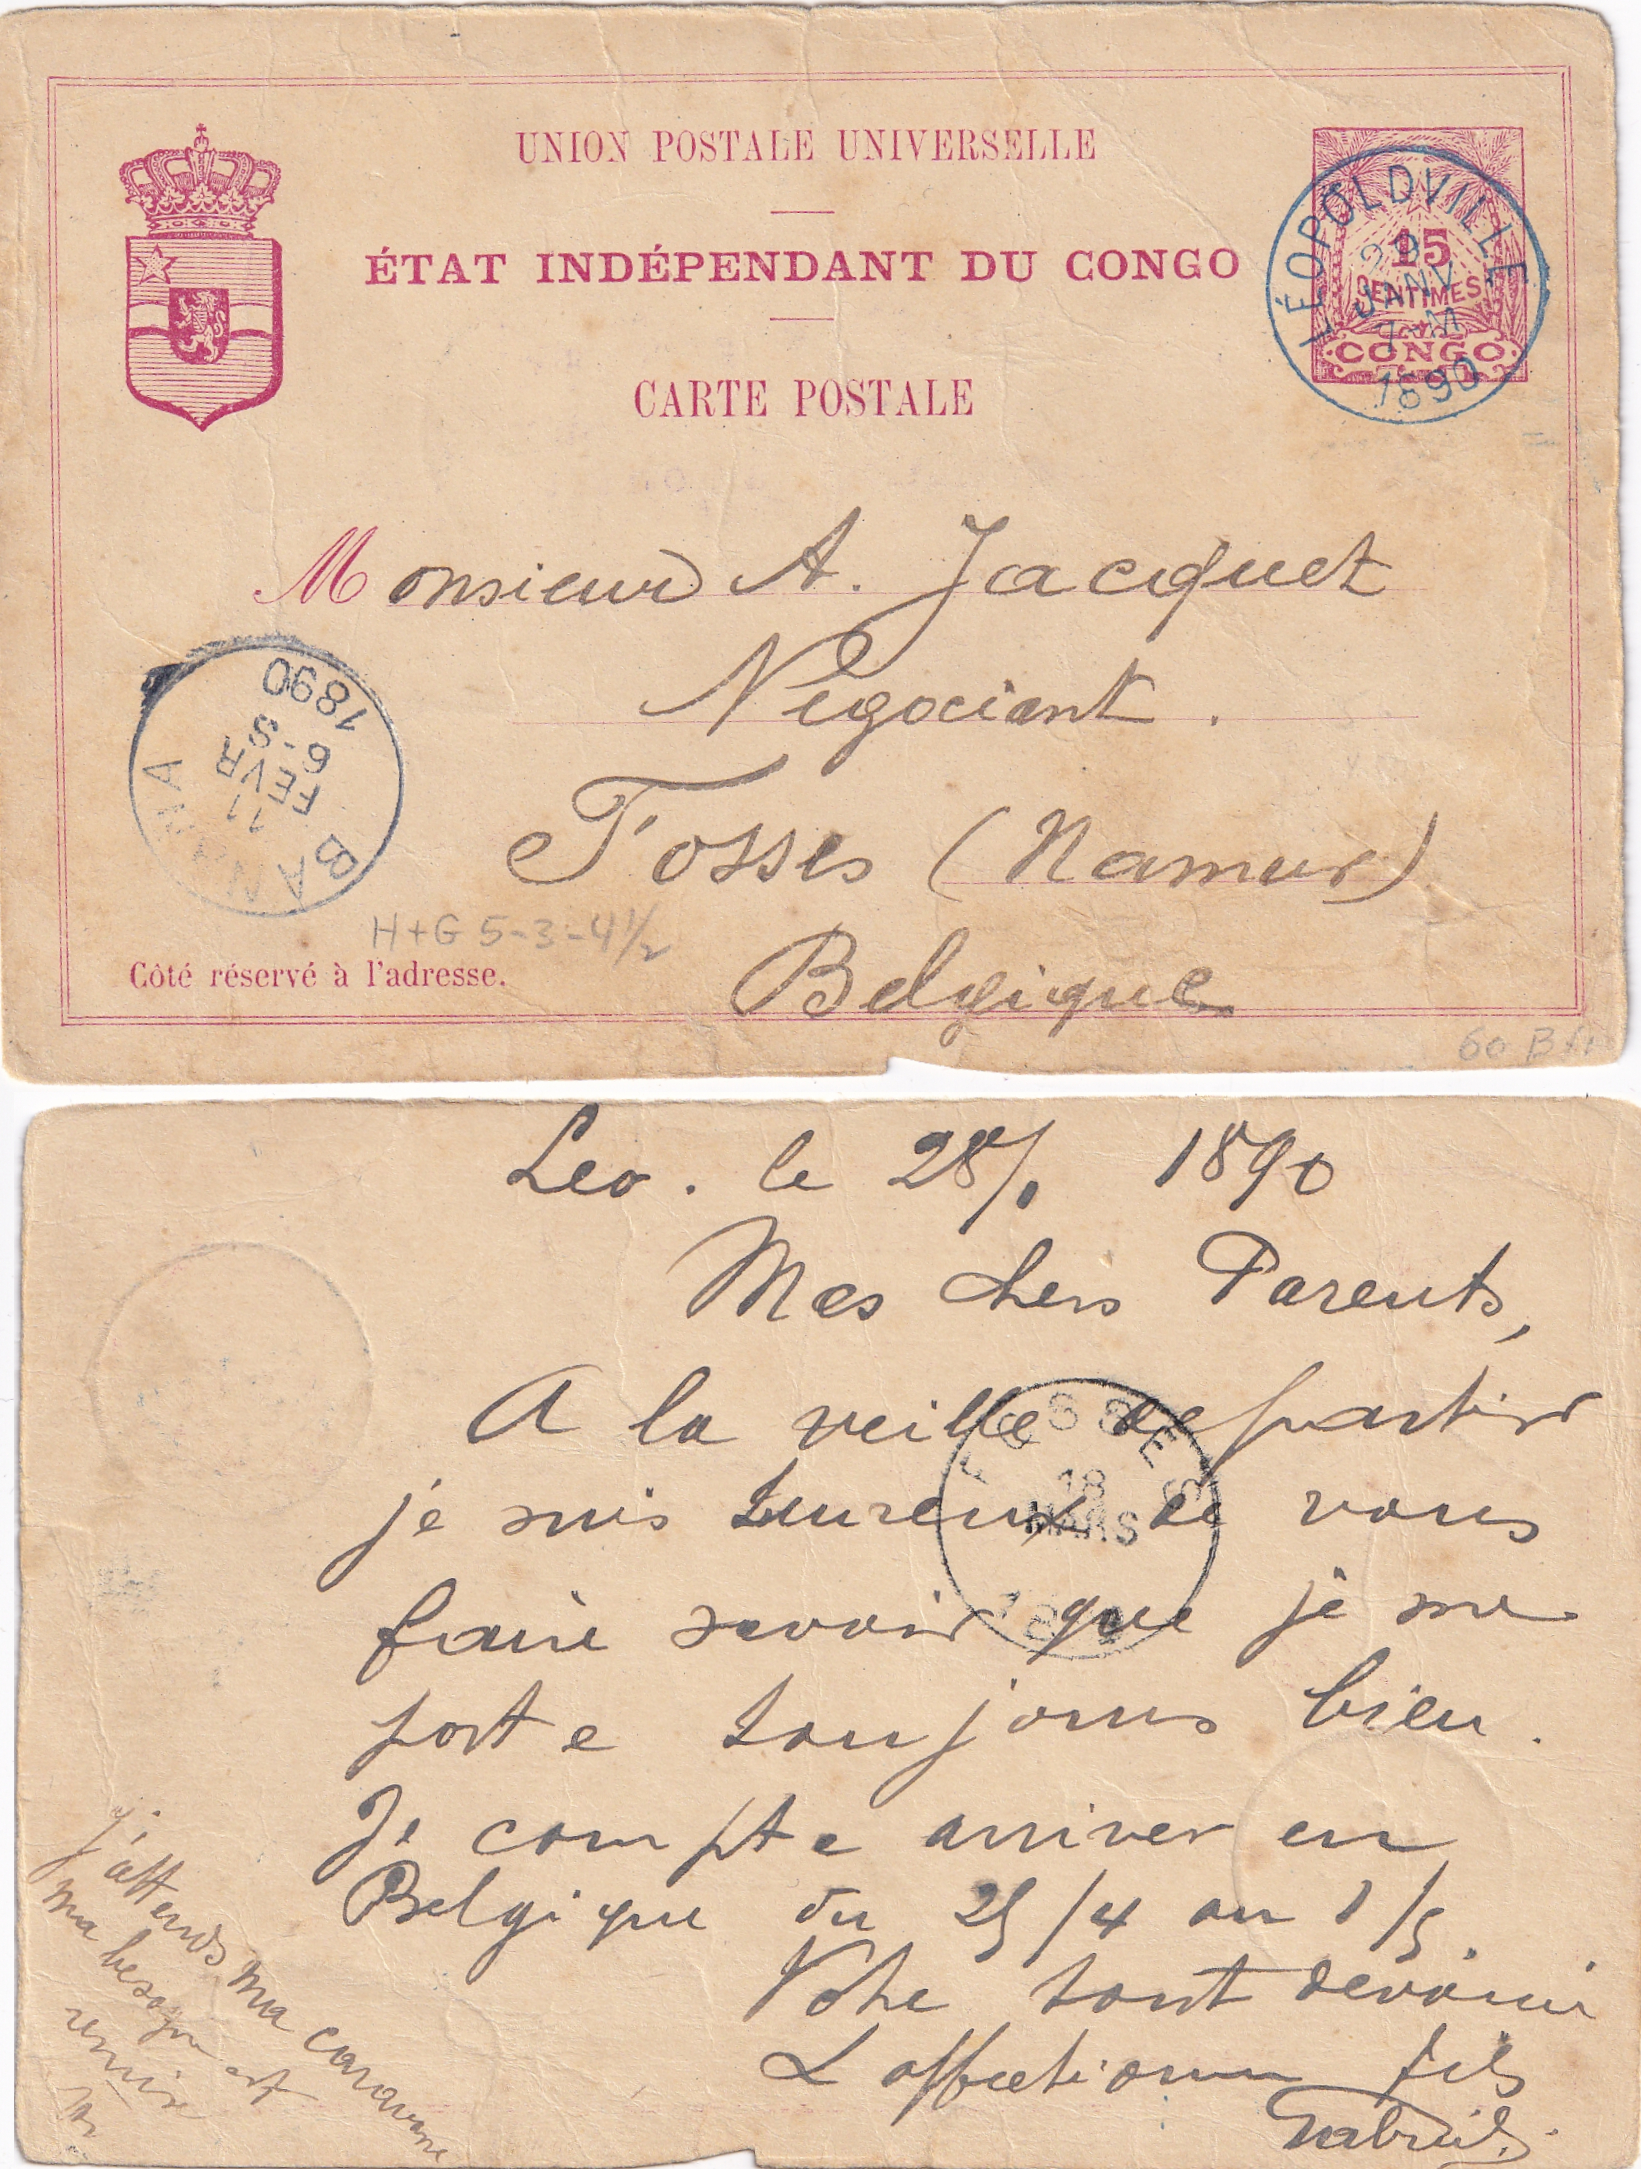 UNION POSTALE UNIVERSELLE
ÉTAT INDÉPENDANT DU CONGO
CARTE POSTALE
15
CENTIMES
CONGO
LÉOPOLDVILLE
JANV
7-M
1890
Monsieur A. Jacquet
Négociant.
Fosses (Namur)
Belgique
BANANA
11
FEVR
6-S
1890
H+G 5-3-4½
Côté réservé à l'adresse.
60
Leo. le 28/1 1890
Mes chers Parents,
A la veille de partir
je suis heureux de vous
faire savoir que je me
porte toujours bien.
Je compte arriver en
Belgique du 25/4 au 1/5.
Votre tout dévoué
& affectionné fils
Gabriel.
FOSSES
18
MARS
j'attends ma caravane
ma besogne est
remise